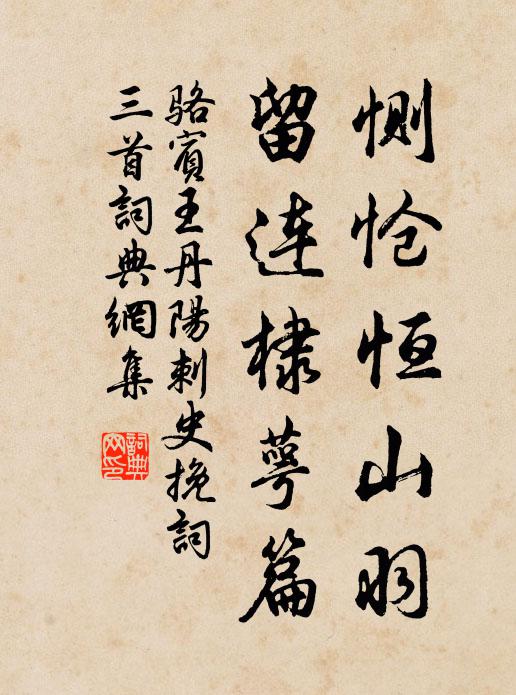 惻愴恒山羽
留連棣萼篇
駱賓王丹陽刺史挽詞
三首詞典網集
詞典
网印